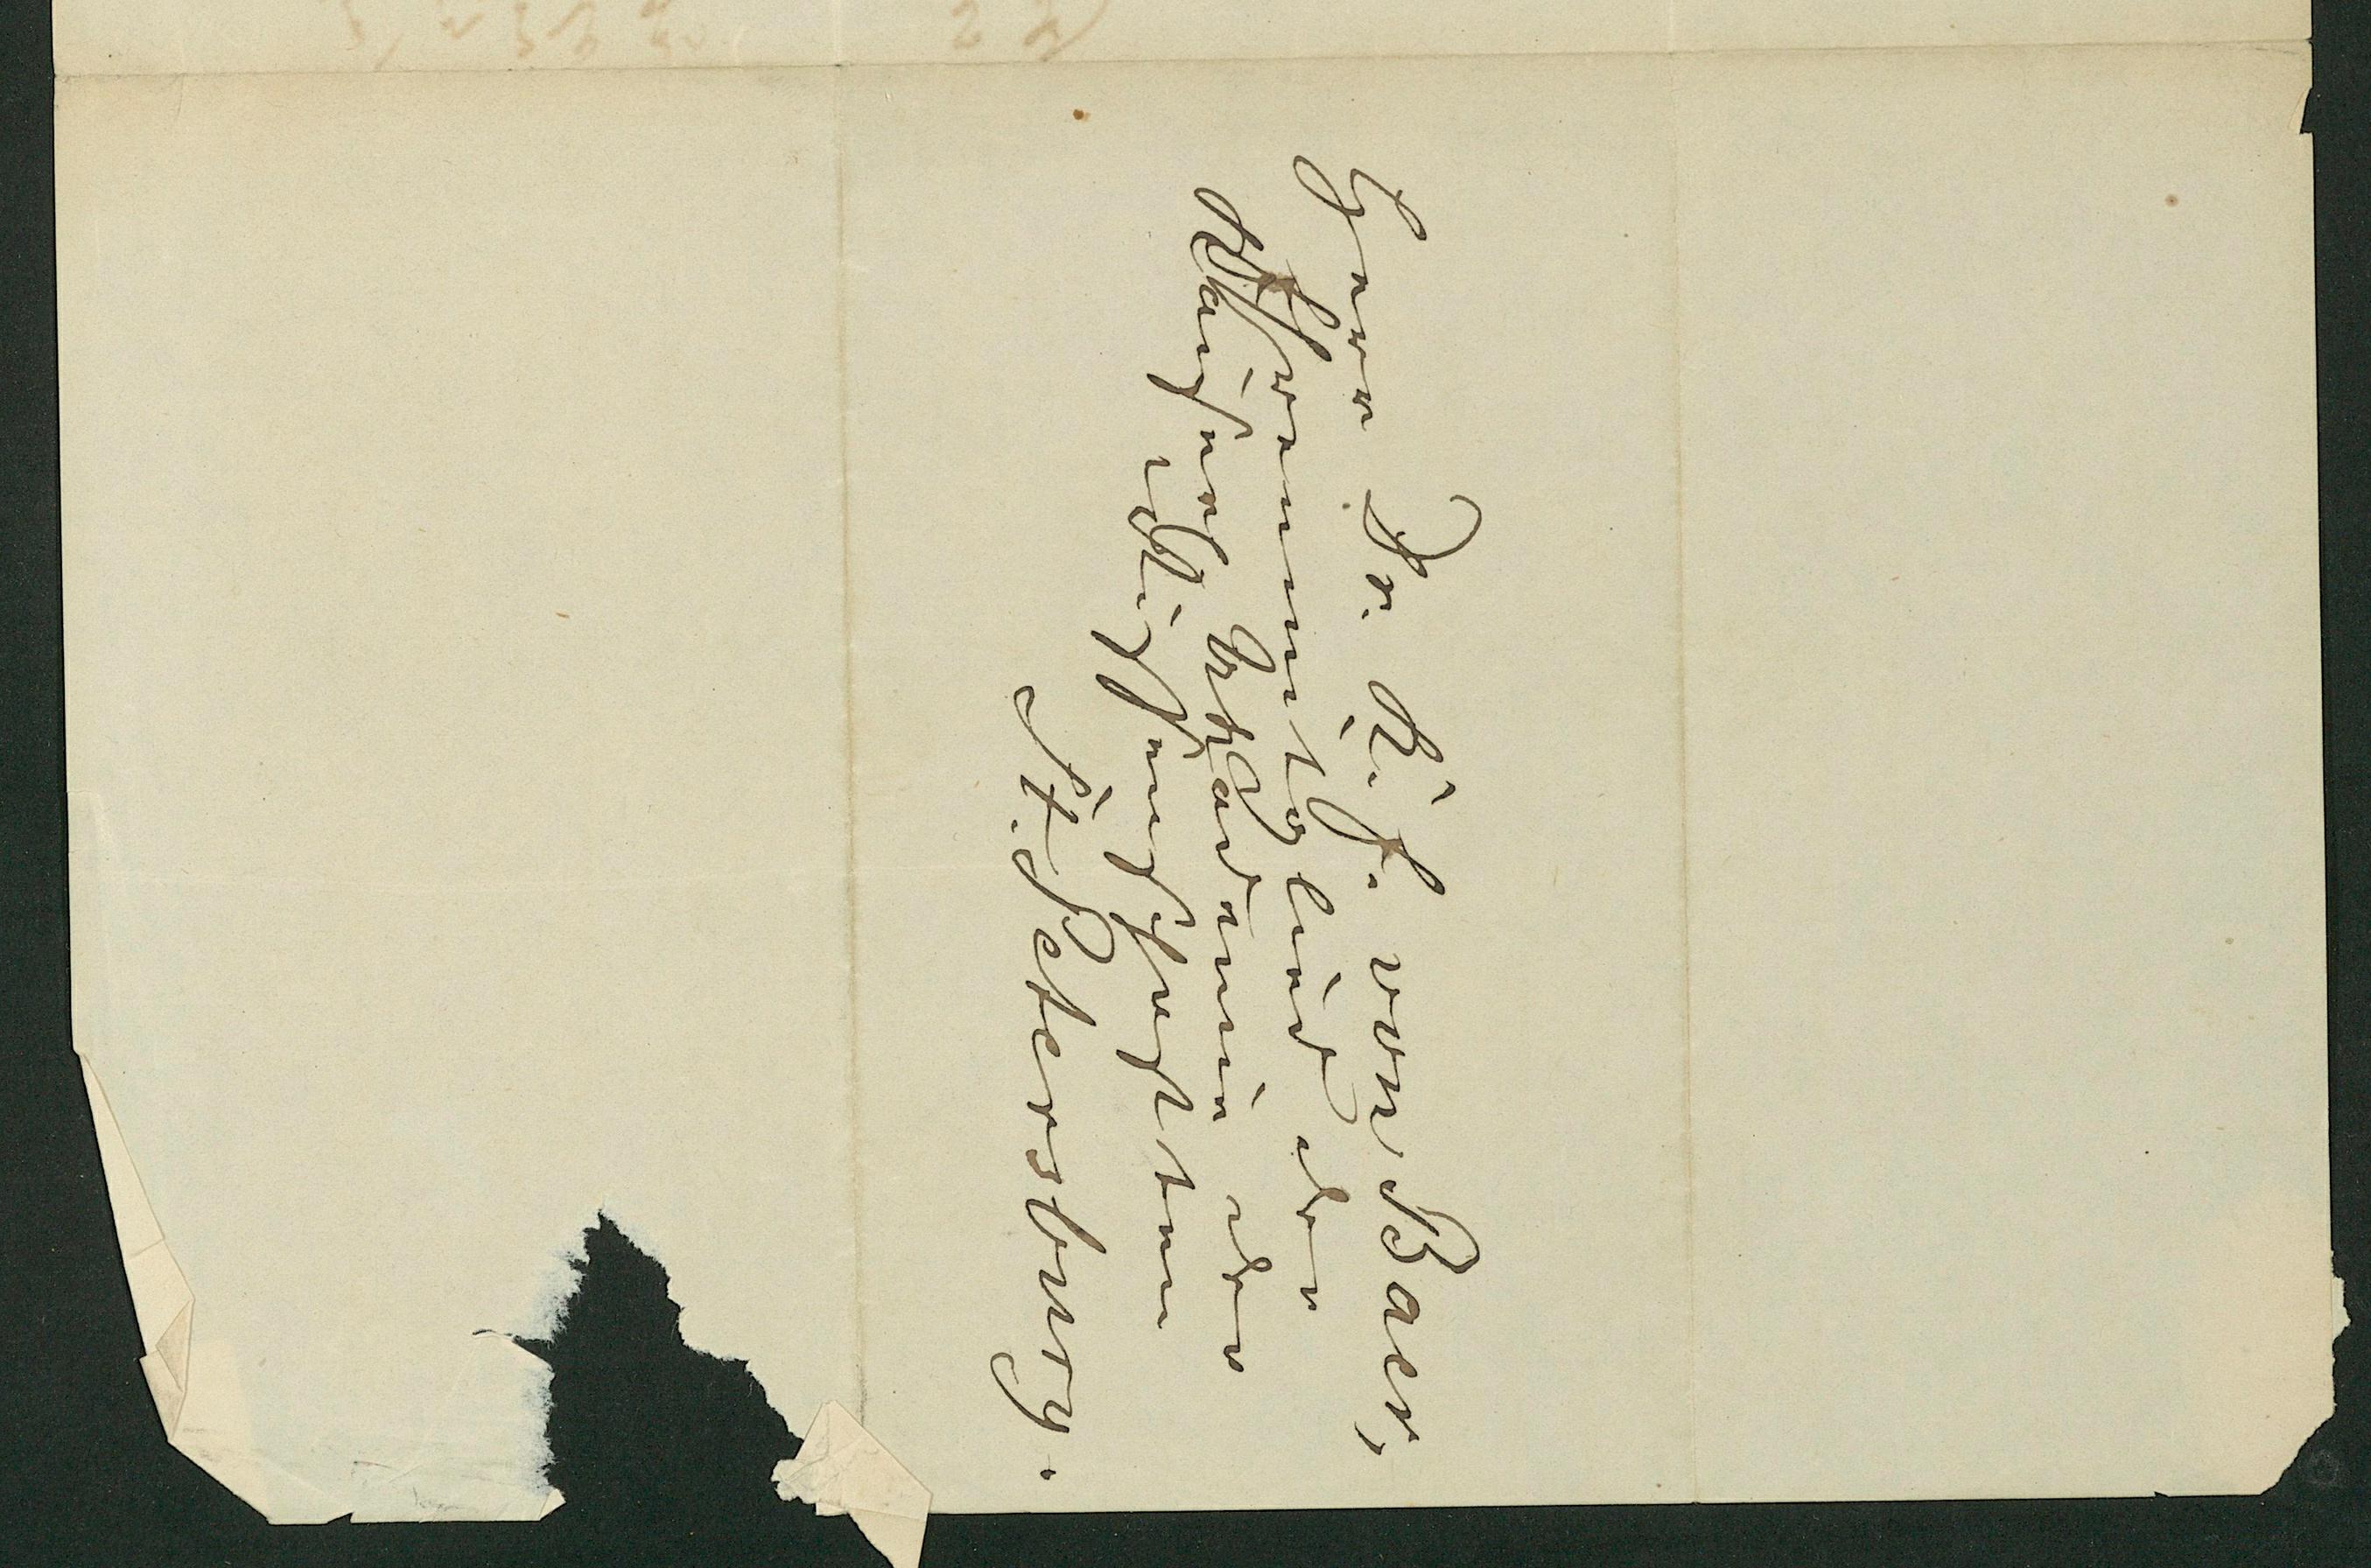 Herrn Dr. K. E. von Baer,
Ehrenmitglied der
Kaiserl. Akademie der
Wissenschaften
St. Petersburg.